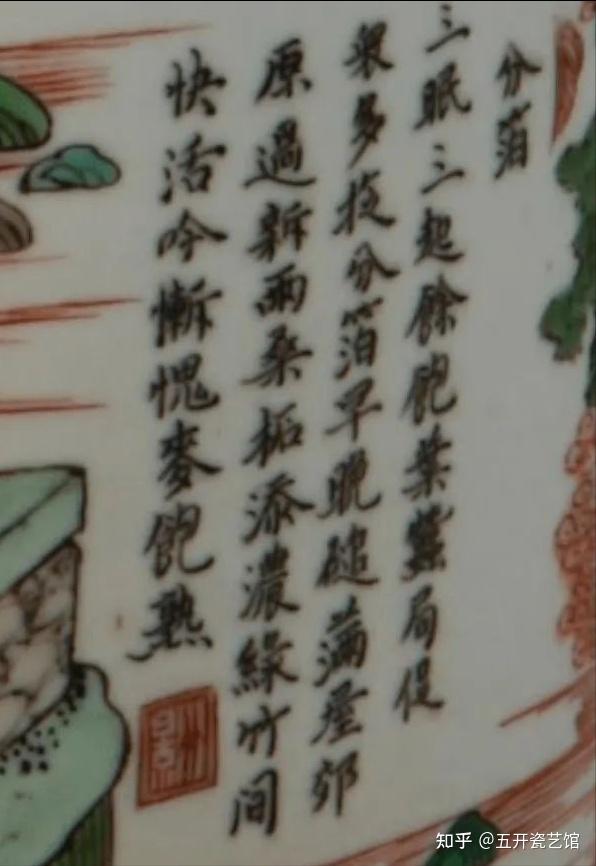 分箔
三眠三起餘飽葉蠶局促
衆多旋分箔早晚槌滿屋郊
原過新雨桑柘添濃綠竹间
快活吟慚愧麥飽熟
知乎 @五开瓷艺馆